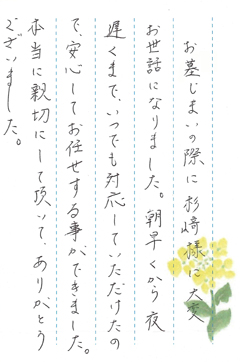 お墓じまいの際に杉崎様に大変
お世話になりました。朝早くから夜
遅くまで、いつでも対応していただけたの
で、安心してお任せする事ができました。
本当に親切にして頂いて、ありがとう
ございました。